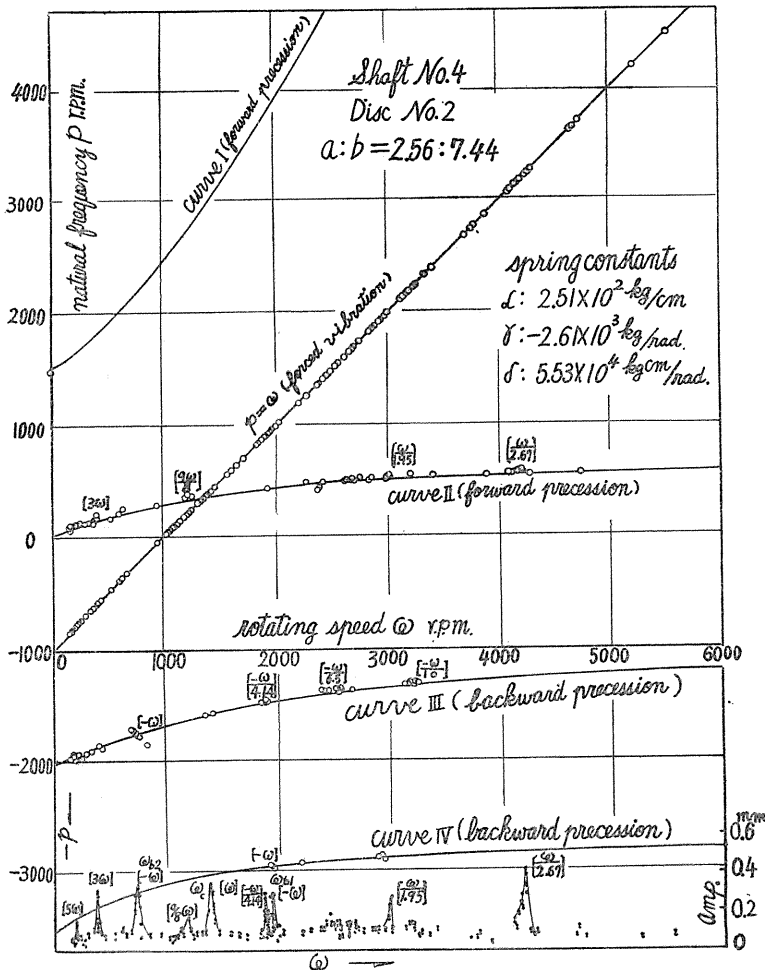 4000
3000
2000
1000
0
-1000
-2000
-3000
natural frequency p r.p.m.
curve I (forward precession)
Shaft No.4
Disc No.2
a:b=2.56:7.44
p=ω (forced vibration)
spring constants
α: 2.51×10² kg/cm
γ: -2.61×10³ kg/rad.
δ: 5.53×10⁴ kgcm/rad.
[3ω]
[ω/1.95]
[ω/2.67]
curve II (forward precession)
rotating speed ω r.p.m.
0 1000 2000 3000 4000 5000 6000
[-ω]
[-ω/4.14]
curve III (backward precession)
-p
curve IV (backward precession)
[-ω]
mm
0.6
0.4
0.2
0
Amp.
[5ω]
[3ω]
ωb2
[-ω]
ωc
[ω]
[-ω/4.14]
ωb1
[-ω]
[-ω/1.95]
[ω/2.67]
ω